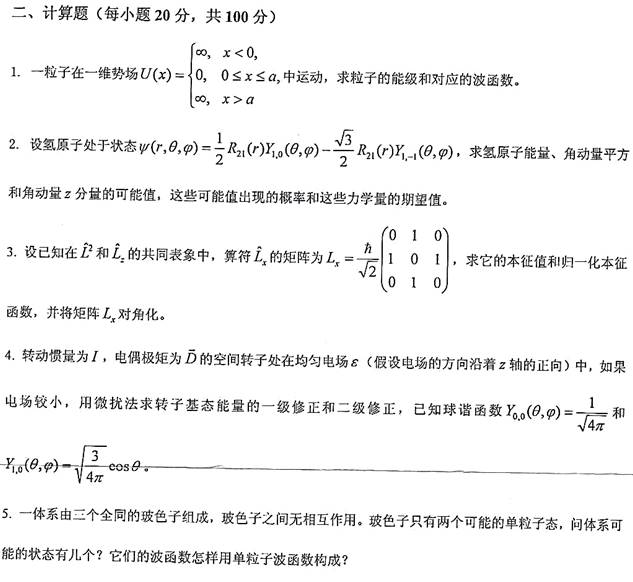 二、计算题（每小题 20 分，共 100 分）
1. 一粒子在一维势场 U(x) = { ∞, x < 0, 0, 0 ≤ x ≤ a, ∞, x > a 中运动，求粒子的能级和对应的波函数。
2. 设氢原子处于状态 ψ(r,θ,φ) = 1/2 R₂₁(r)Y₁,₀(θ,φ) − √3/2 R₂₁(r)Y₁,₋₁(θ,φ)，求氢原子能量、角动量平方
和角动量 z 分量的可能值，这些可能值出现的概率和这些力学量的期望值。
3. 设已知在 L̂² 和 L̂_z 的共同表象中，算符 L̂_x 的矩阵为 L_x = ħ/√2 (0 1 0; 1 0 1; 0 1 0)，求它的本征值和归一化本征
函数，并将矩阵 L_x 对角化。
4. 转动惯量为 I，电偶极矩为 D⃗ 的空间转子处在均匀电场 ε（假设电场的方向沿着 z 轴的正向）中，如果
电场较小，用微扰法求转子基态能量的一级修正和二级修正，已知球谐函数 Y₀,₀(θ,φ) = 1/√4π 和
Y₁,₀(θ,φ) = √3/4π cosθ。
5. 一体系由三个全同的玻色子组成，玻色子之间无相互作用。玻色子只有两个可能的单粒子态，问体系可
能的状态有几个？它们的波函数怎样用单粒子波函数构成？